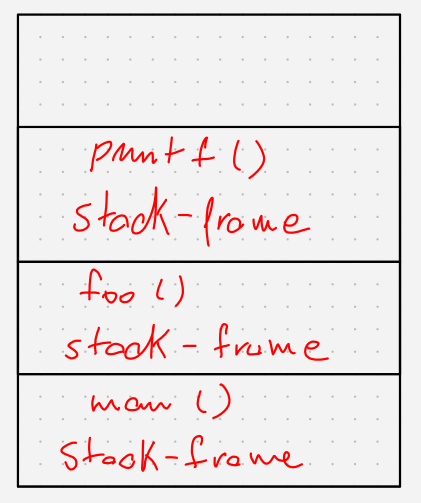 printf ()
stack-frame
foo ()
stack-frame
main ()
stack-frame